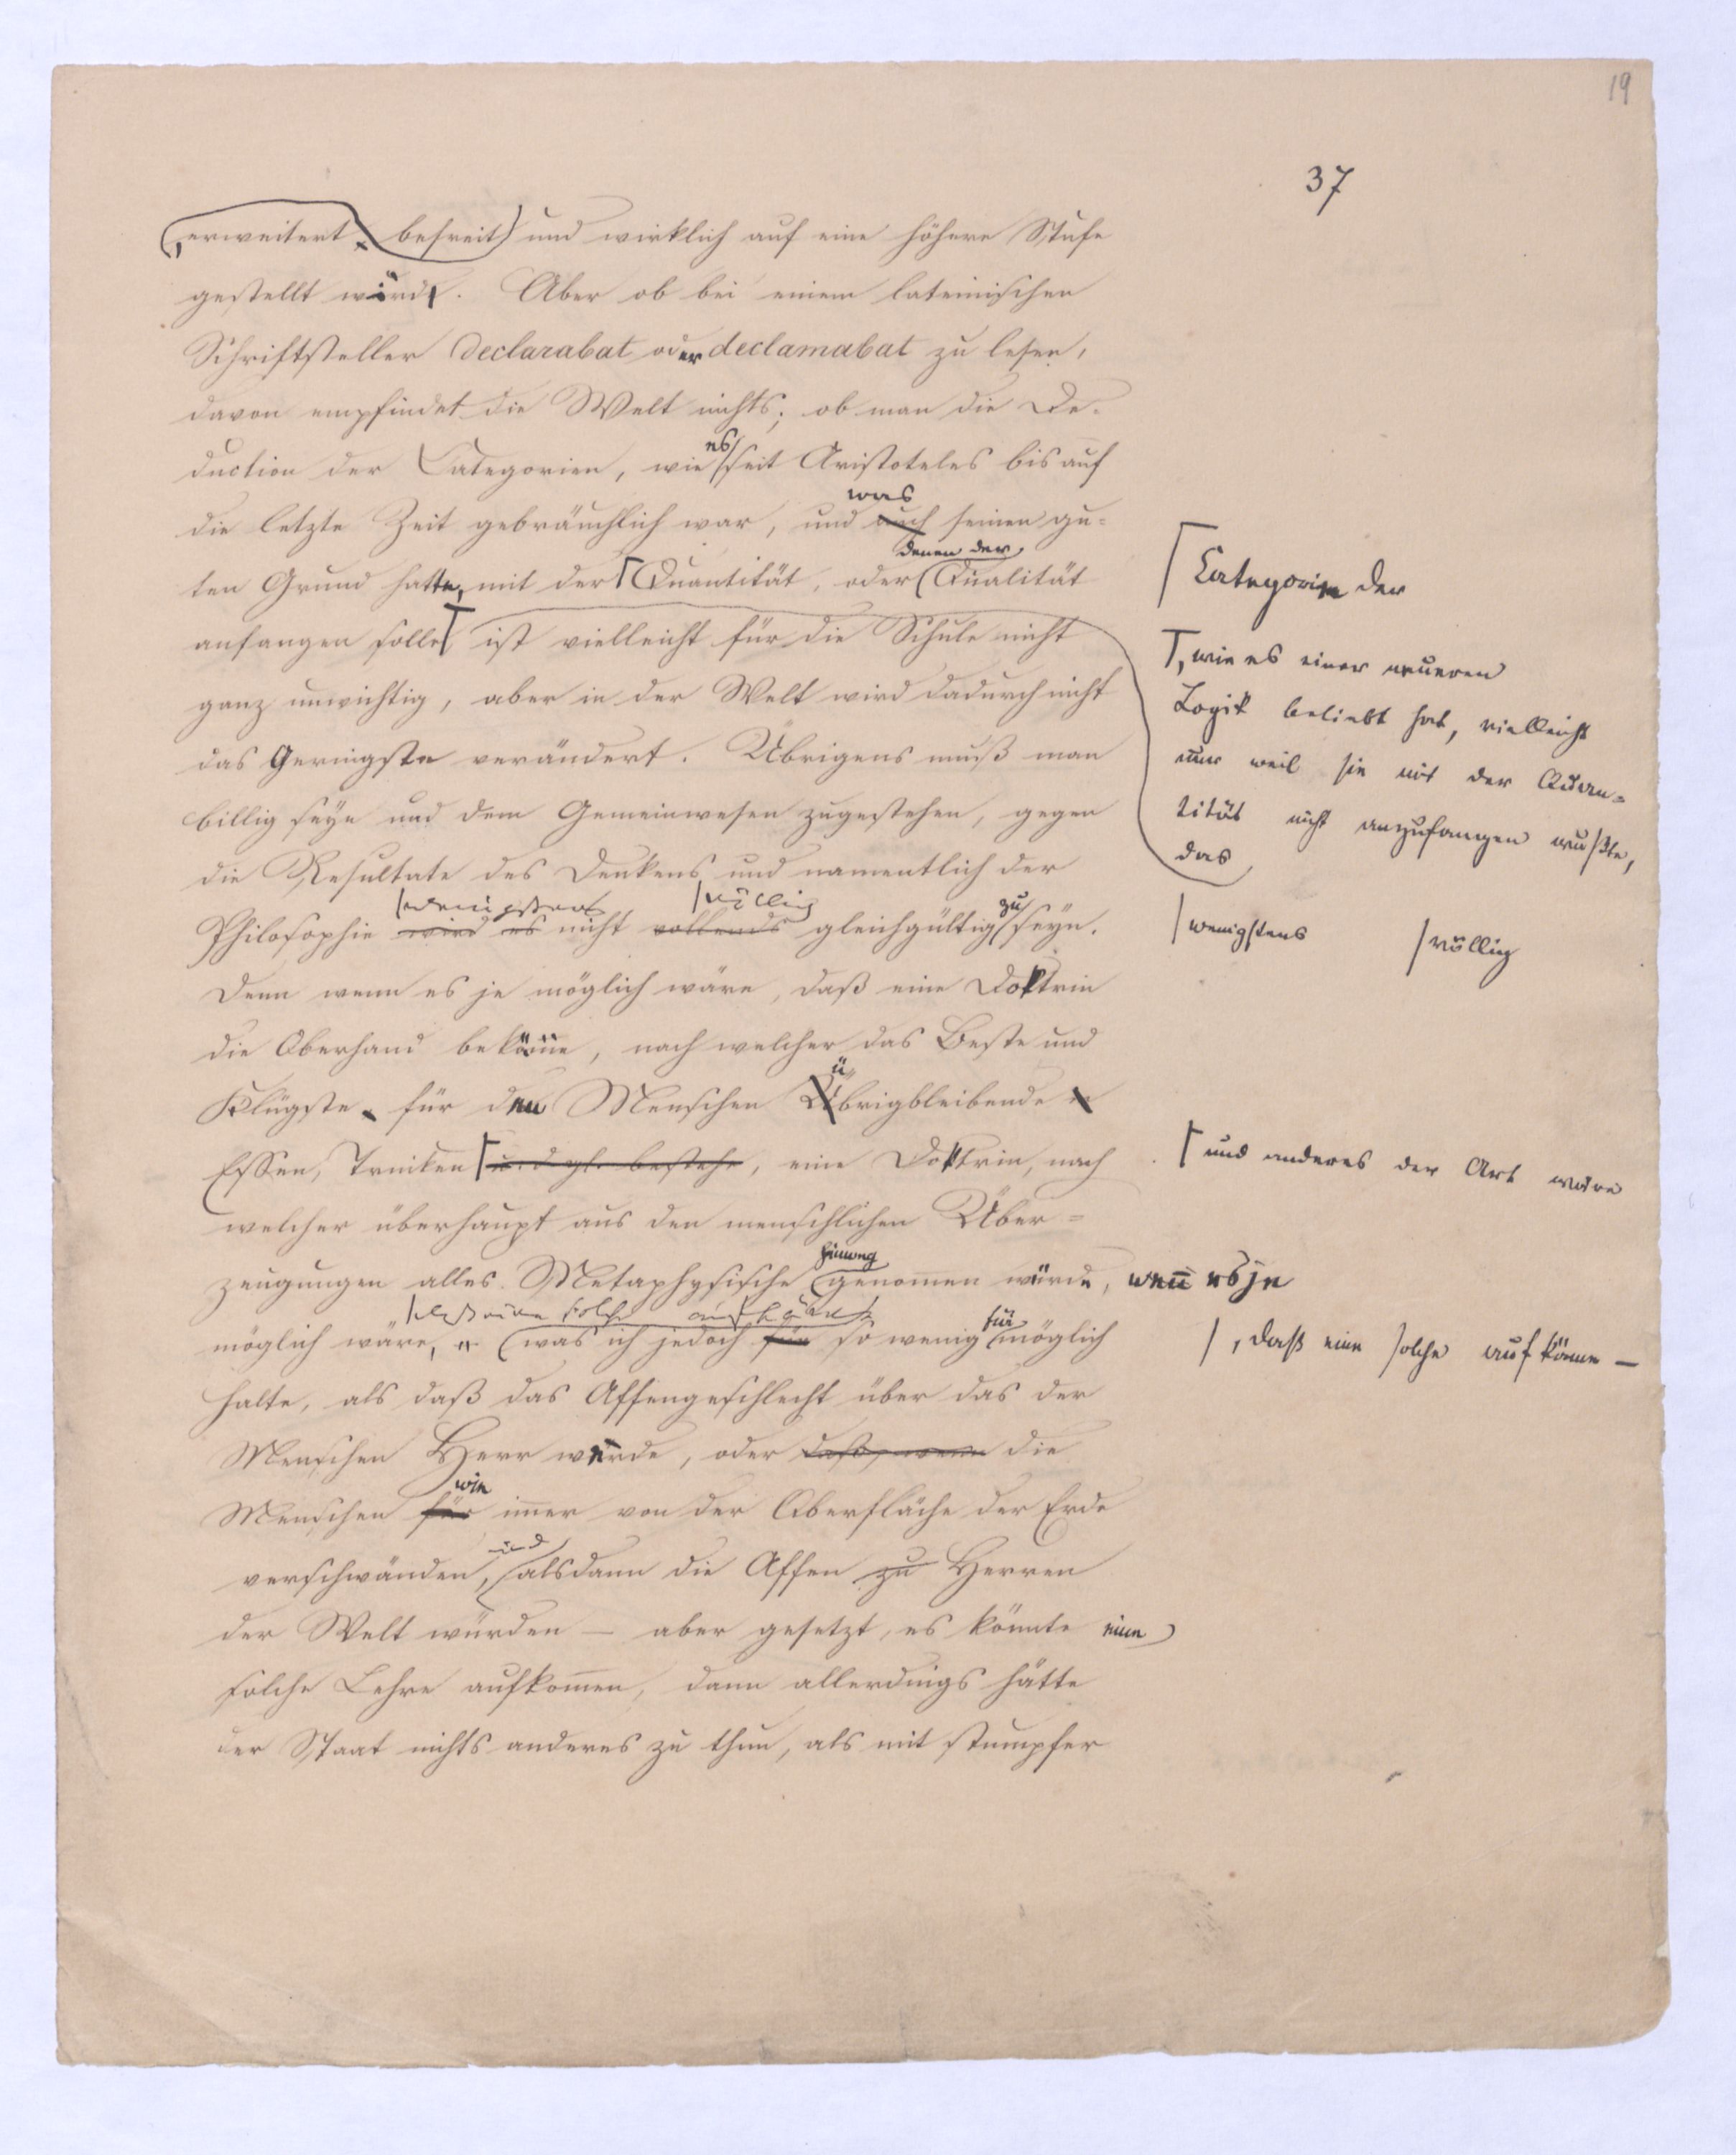 19
37
, erweitert, befreit und wirklich auf eine höhere Stufe
gestellt würd. Aber ob bei einem lateinischen
Schriftsteller declarabat oder declamabat zu lesen,
davon empfindet die Welt nichts; ob man die De-
duction der Categorien, wie es seit Aristoteles bis auf
was
die letzte Zeit gebräuchlich war, und auch seinen gu=
denen der
ten Grund hatte, mit der Quantität, oder Qualität
Categorie der
anfangen solle ist vielleicht für die Schule nicht
, wie es einer neueren
Logik beliebt hat, vielleicht
nur weil sie mit der Quan=
tität nicht anzufangen wußte,
das
ganz unwichtig, aber in der Welt wird dadurch nicht
das Geringste verändert. Übrigens muß man
billig seyn und dem Gemeinwesen zugestehen, gegen
die Resultate des Denkens und namentlich der
wenigstens völlig zu
Philosophie wird es nicht vollends gleichgültig seyn.
wenigstens völlig
Denn wenn es je möglich wäre, daß eine Doktrin
die Oberhand bekäme, nach welcher das Beste und
ü
Klügste für den Menschen Übrigbleibende
Essen, Trinken u. dgl. bestehe, eine Doktrin, nach
und anderes der Art wäre
welcher überhaupt aus den menschlichen Über=
hinweg
zeugungen alles Metaphysische genommen würde, wenn es je
daß eine solche aufkäme
für
möglich wäre, was ich jedoch für so wenig möglich
, daß eine solche aufkäme —
halte, als daß das Affengeschlecht über das der
Menschen Herr werde, oder daß, wenn die
wie
Menschen für immer von der Oberfläche der Erde
und
verschwänden, alsdann die Affen zu Herren
der Welt würden — aber gesetzt, es könnte eine
solche Lehre aufkommen, dann allerdings hätte
der Staat nichts anderes zu thun, als mit stumpfer